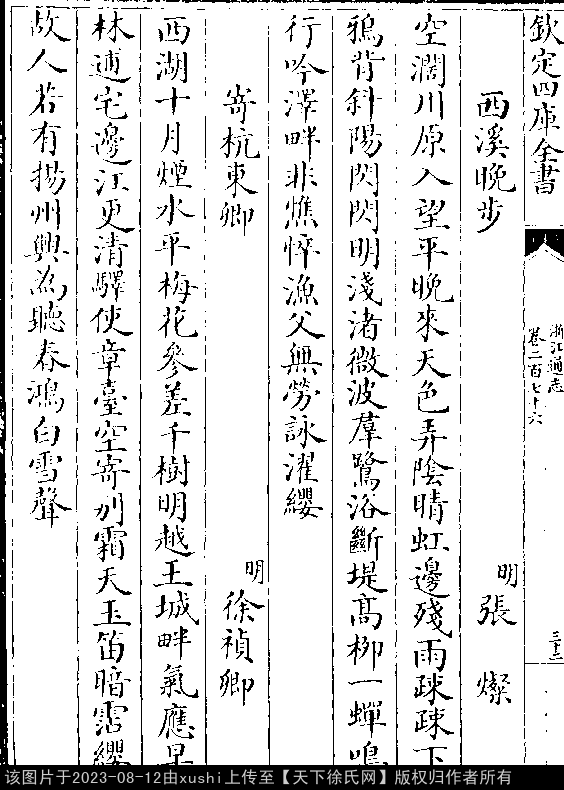 欽定四庫全書
浙江通志
卷二百七十六
三十二
西溪晚步
明張燦
空濶川原入望平晚來天色弄陰晴虹邊殘雨疎疎下
鴉背斜陽閃閃明淺渚微波羣鷺浴斷堤髙栁一蟬鳴
行吟澤畔非憔悴漁父無勞詠濯纓
寄杭東卿
明徐禎卿
西湖十月煙水平梅花參差千樹明越王城畔氣應早
林逋宅邊江更清驛使章臺空寄别霜天玉笛暗霑纓
故人若有揚州興為聽春鴻白雪聲
该图片于2023-08-12由xushi上传至【天下徐氏网】版权归作者所有